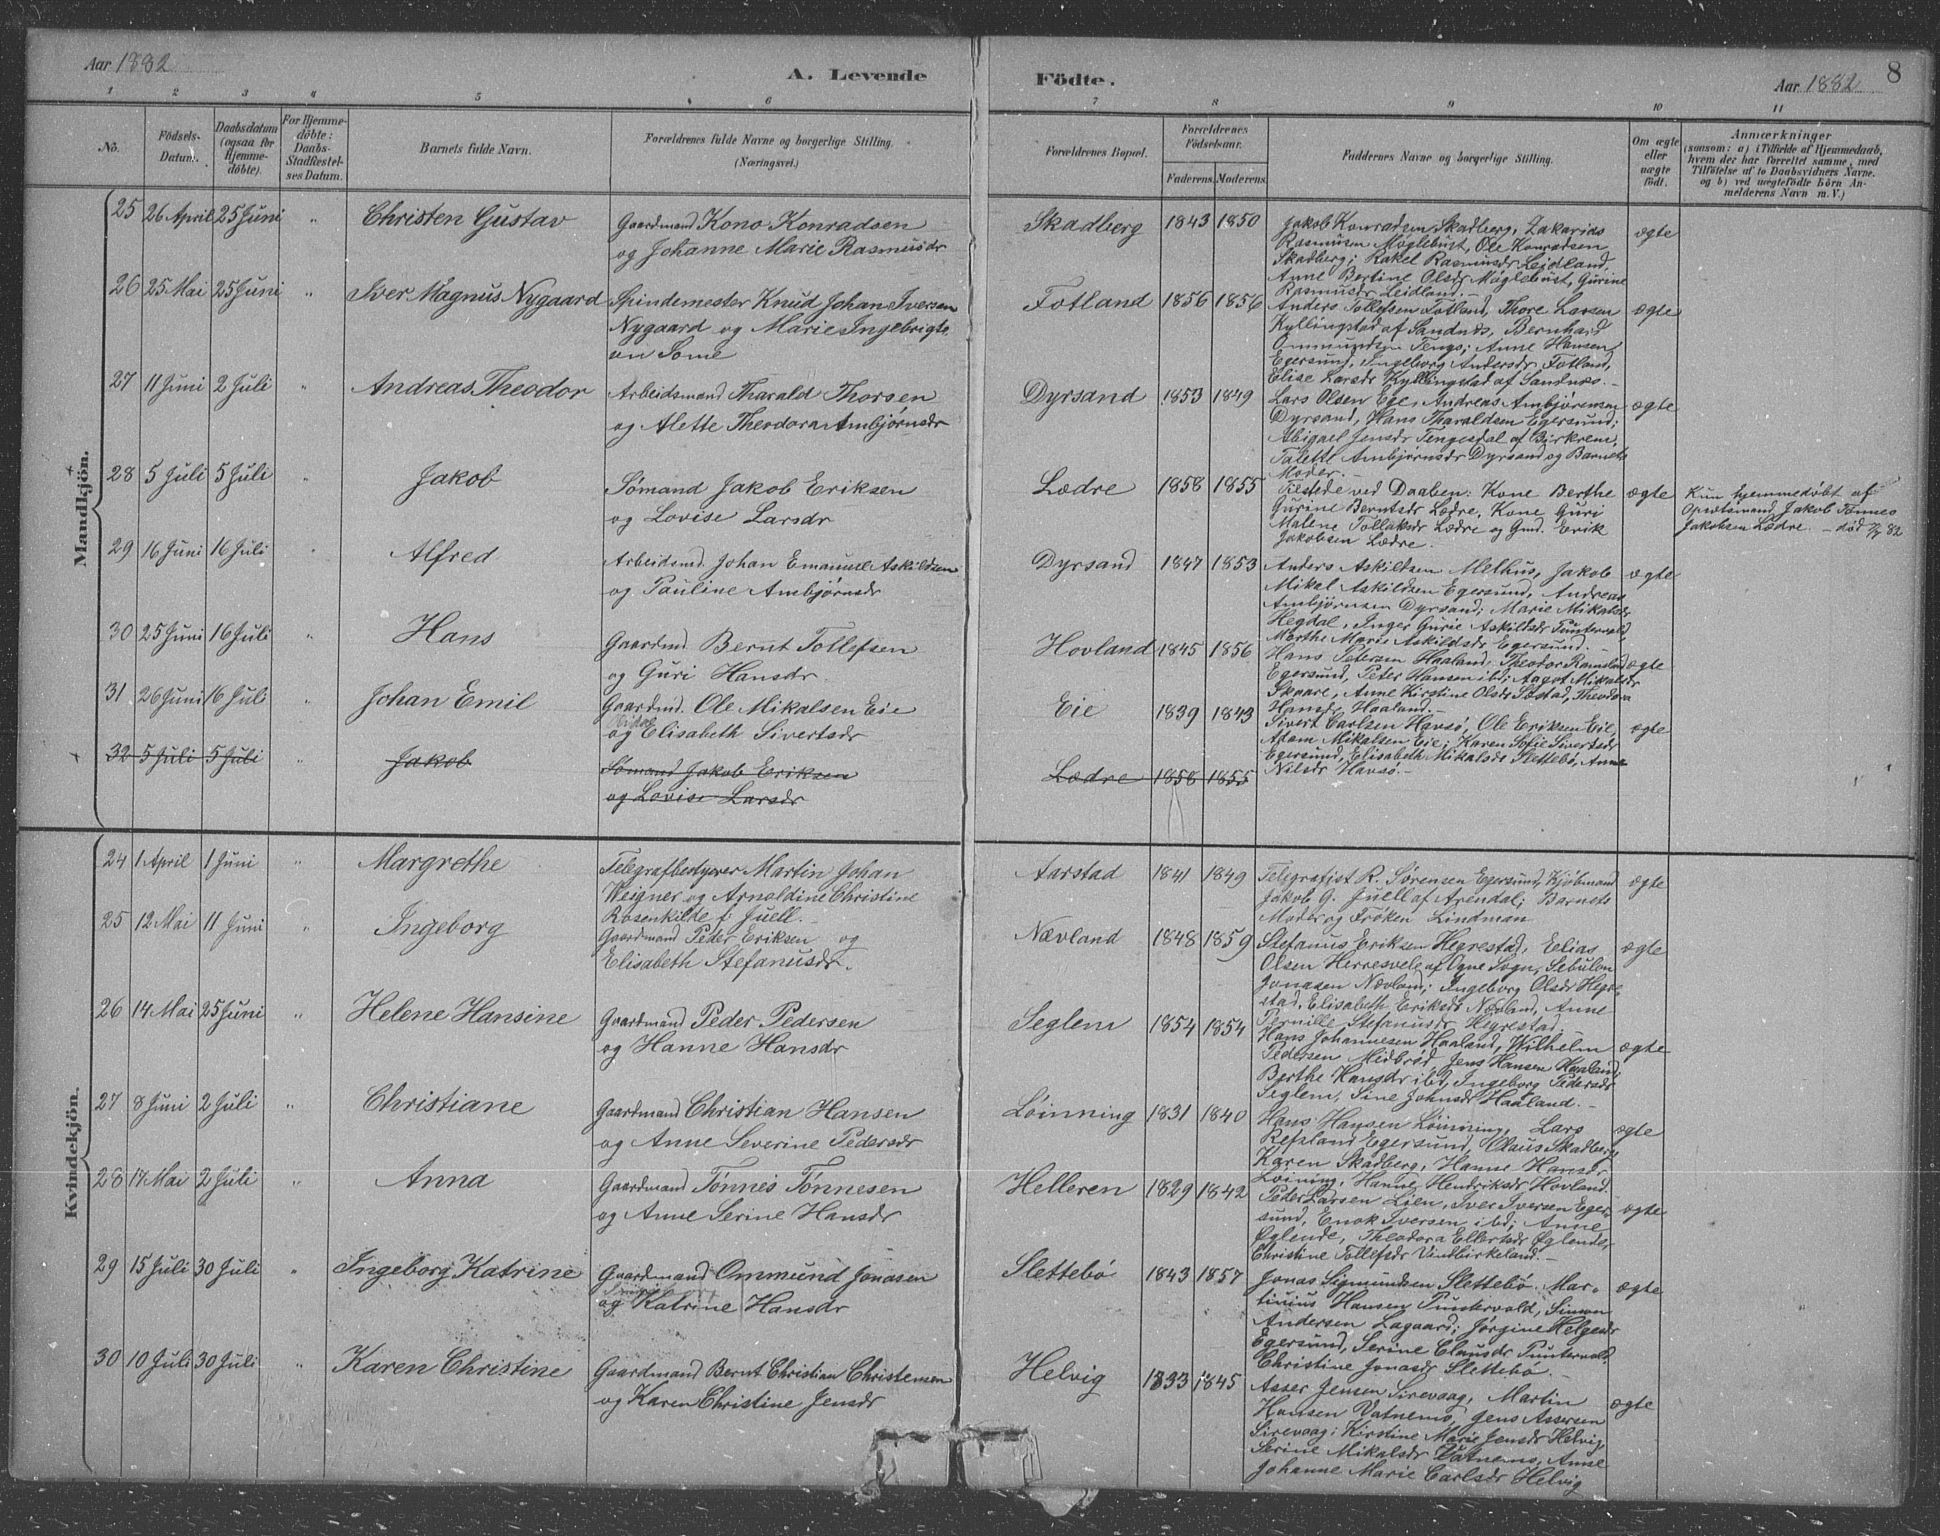 Aar 1882
A. Levende Födte.
Aar 1882
8
1 2 3 4 5 6 7 8 9 10 11
No.
Födsels-Datum.
Daabsdatum (ogsaa for Hjemme-döbte).
For Hjemme-döbte: Daabs-Stadfæstel-ses Datum.
Barnets fulde Navn.
Forældrenes fulde Navne og borgerlige Stilling. (Næringsvei.)
Forældrenes Bopæl.
Forældrenes Födselsaar.
Faderens. Moderens.
Faddernes Navne og borgerlige Stilling.
Om ægte eller uægte födt.
Anmærkninger
(saasom: a) i Tilfælde af Hjemmedaab, hvem der har forrettet samme, med Tilföielse af to Daabsvidners Navne. og b) ved uægtefödte börn Anmelderens Navn m. V.)
Mandkjön.
25 26 April 25 Juni " Christen Gustav
Gaardmand Kono Konradsen
og Johanne Marie Rasmusdr
Skadberg 1843 1850
Jakob Konradsen Skadberg, Zakarias
Rasmusen Møglebust, Ole Konradsen
Skadberg; Rakel Rasmusdr Leidland,
Anne Bertine Olsdr Møglebust, Gurine
Rasmusdr Leidland.
ægte
26 25 Mai 25 Juni " Iver Magnus Nygaard
Spindemester Knud Johan Iversen
Nygaard og Marie Ingebrigts
en Tome
Fotland 1856 1856
Anders Tollefsen Fotland, Thore Larsen
Kyllingstad af Sandnæs, Bernhard
Ommundsen Tengs; Anne Hansen
Egersund, Ingeborg Andersdr Fotland,
Elise Larsdr Kyllingstad af Sandnæs.
ægte
27 11 Juni 2 Juli " Andreas Theodor
Arbeidsmand Tharald Thorsen
og Alette Theodora Ambjørnsdr
Dyrsand 1853 1849
Lars Olsen Ege, Andreas Ambjørnsen
Dyrsand, Hans Tharaldsen Egersund;
Abigael Jensdr Tengesdal af Birkrem,
Talette Ambjørnsdr Dyrsand og Barnets
Moder.
ægte
28 5 Juli 5 Juli " Jakob
Sømand Jakob Eriksen
og Lovise Larsdr
Lædre 1858 1855
Tilstede ved Daaben: Kone Berthe
Gurine Berntsdr Lædre, Kone Guri
Malene Tollaksdr Lædre og Gmd. Erik
Jakobsen Lædre.
ægte
Kun hjemmedøbt af
Opsidsmand Jakob Tønnes
Jakobsen Lædre. – død 7/7 82
29 16 Juni 16 Juli " Alfred
Arbeidsmd. Johan Emanuel Askildsen
og Pauline Ambjørnsdr
Dyrsand 1847 1853
Anders Askildsen Melhus, Jakob
Mikal Askildsen Egersund, Andreas
Ambjørnsen Dyrsand; Marie Mikalsdr
Hegdal, Inger Gurie Askildsdr Puntervold,
Marthe Marie Askildsdr Egersund.
ægte
30 25 Juni 16 Juli " Hans
Gaardmd. Bernt Tollefsen
og Guri Hansdr
Hovland 1845 1856
Hans Petersen Haaland, Theodor Ramsland
Egersund, Peter Hansen ibd; Aagot Mikalsdr
Skaare, Anne Kirstine Olsdr Sæstad, Theodora
Hansdr Haaland.
ægte
31 26 Juni 16 Juli " Johan Emil
Gaardmd. Ole Mikalsen Eie
og Elisabeth Sivertsdr
Eie 1839 1843
Sivert Carlsen Havsø, Ole Eriksen Eie,
Adam Mikalsen Eie; Karen Sofie Sivertsdr
Egersund, Elisabeth Mikalsdr Slettebø, Anne
Nilsdr Havsø.
ægte
32 5 Juli 5 Juli " Jakob
Sømand Jakob Eriksen
og Lovise Larsdr
Lædre 1858 1855
Kvindekjön.
24 1 April 1 Juni " Margrethe
Telegrafbestyrer Martin Johan
Weigner og Arnoldine Christine
Rosenkilde f. Juell.
Aarstad 1841 1849
Telegrafist R. Sørensen Egersund, Kjøbmand
Jakob G. Juell af Arendal; Barnets
Moder og Frøken Lindman
ægte
25 12 Mai 11 Juni " Ingeborg
Gaardmand Peder Eriksen og
Elisabeth Stefanusdr.
Nævland 1848 1859
Stefanus Eriksen Hegrestad, Elias
Olsen Herresvele af Ogne Sogn, Sebulon
Jonasen Nævland; Ingeborg Olsdr Hegre-
stad, Elisabeth Eriksdr Nævland, Anne
Pernille Stefanusdr Hegrestad.
ægte
26 14 Mai 25 Juni " Helene Hansine
Gaardmand Peder Pedersen
og Hanne Hansdr
Seglem 1854 1854
Hans Johannesen Haaland, Wilhelm
Pedersen Midbrød, Jens Hansen Haaland;
Berthe Hansdr ibd, Ingeborg Pedersdr
Seglem, Sine Johnsdr Haaland.
ægte
27 8 Juni 2 Juli " Christiane
Gaardmand Christian Hansen
og Anne Severine Pedersdr
Løinning 1831 1840
Hans Hansen Løinning, Lars
Refsland Egersund, Olaus Skadberg,
Karen Skadberg, Hanne Hansdr
Løining, Hanne Hendriksdr Hovland.
ægte
28 17 Mai 2 Juli " Anna
Gaardmand Tønnes Tønnesen
og Anne Serine Hansdr
Helleren 1829 1842
Peder Larsen Lien, Iver Iversen Eger-
sund, Enok Iversen ibd; Anne
Øglende, Theodora Ellertsdr Øglende,
Christine Tollefsdr Vindbirkeland.
ægte
29 15 Juli 30 Juli " Ingeborg Katrine
Gaardmand Ommund Jonasen
og Katrine Hansdr
Slettebø 1843 1857
Jonas Sigmundsen Slettebø. Mar-
tinius Hansen Puntervold, Simon
Andersen Lagaard; Jørgine Helgesdr
Egersund, Serine Clausdr Puntervold,
Christine Jonasdr Slettebø.
ægte
30 10 Juli 30 Juli " Karen Christine
Gaardmand Bernt Christian Christensen
og Karen Christine Jensdr
Helvig 1833 1845
Asser Jensen Sirevaag, Martin
Hansen Vatnemo, Jens Assersen
Sirevaag; Kirstine Marie Jensdr Helvig,
Serine Mikalsdr Vatnemo, Anne
Johanne Marie Carlsdr Helvig
ægte